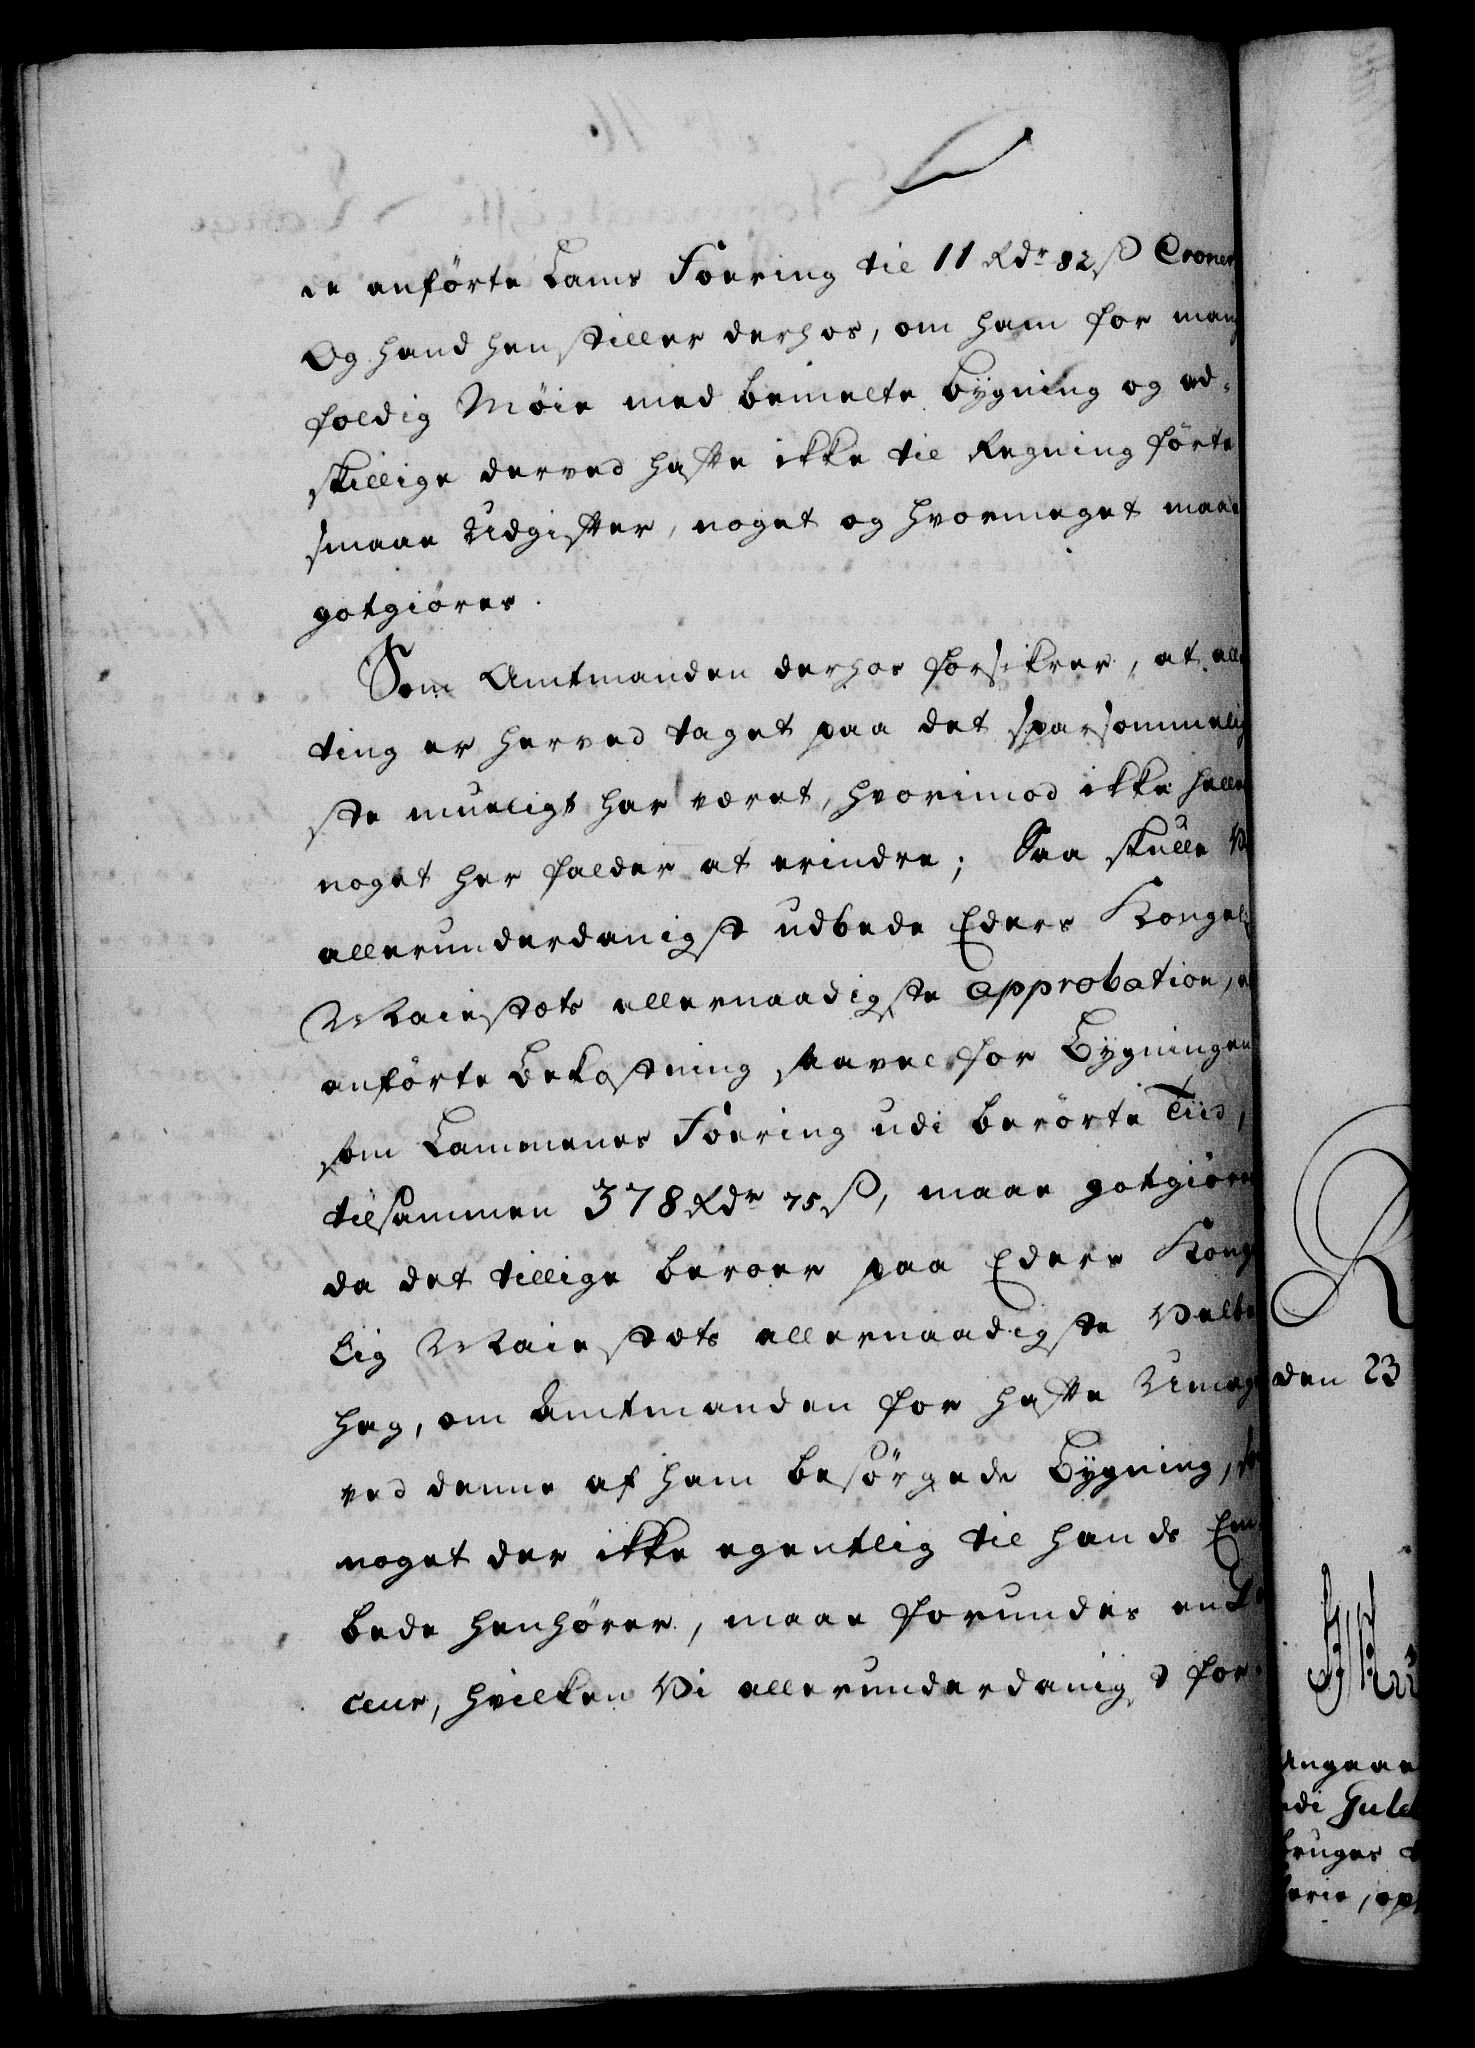 de anførte Lams Foering til 11 Rdr 82 ß Croner
Og hand henstiller derhos, om ham for mang
foldig Møie med bemelte Bygning og ad-
skillige derved hafte ikke til Regning førte
smaae Udgifter, noget og hvormeget maae
gotgiøres.
Som Amtmanden derhos forsikrer, at alle
ting er herved taget paa det sparsommelig
ste mueligt har været, hvorimod ikke heller
noget her falder at erindre; Saa skulle Vi
allerunderdanigst udbede Eders Kongel:
Maiestæts allernaadigste Approbation, at
anførte Bekostning saavel for Bygningen
som Lammenes Foering udi berørte Tiid,
tilsammen 378 Rdr 75 ß, maae gotgiøres
da det tillige beroer paa Eders Konge
lig Maiestæts allernaadigste Velbe
hag, om Amtmanden for hafte Umag
ved denne af ham besørgede Bygning, som
noget der ikke egentlig til hands Em-
bede henhører, maae forundes en Do
ceur, hvilken Vi allerunderdanigst for-
den 23
Angaae
udi Gul
bruges